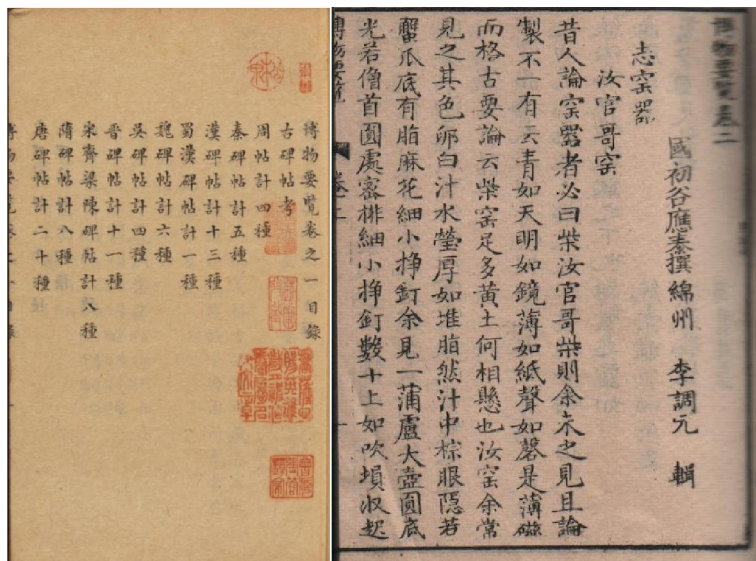 博物要覽卷之一目錄
古碑帖考
周帖計四種
秦碑帖計五種
漢碑帖計十三種
蜀漢碑帖計一種
魏碑帖計六種
吳碑帖計四種
晉碑帖計十一種
宋齊梁陳碑帖計八種
隋碑帖計八種
唐碑帖計二十種
博物要覽卷二
國初谷應泰撰綿州 李調元 輯
志窑器
汝官哥窑
昔人論窑器者必曰柴汝官哥柴則余未之見且論
製不一有云青如天明如鏡薄如紙聲如磬是薄磁
而格古要論云柴窑足多黃土何相懸也汝窑余常
見之其色卵白汁水瑩厚如堆脂然汁中棕眼隱若
蟹爪底有脂麻花細小掙釘余見一蒲盧大壺圓底
光若僧首圓處密排細小掙釘數十上如吹塤收起
博物要覽 卷二 一